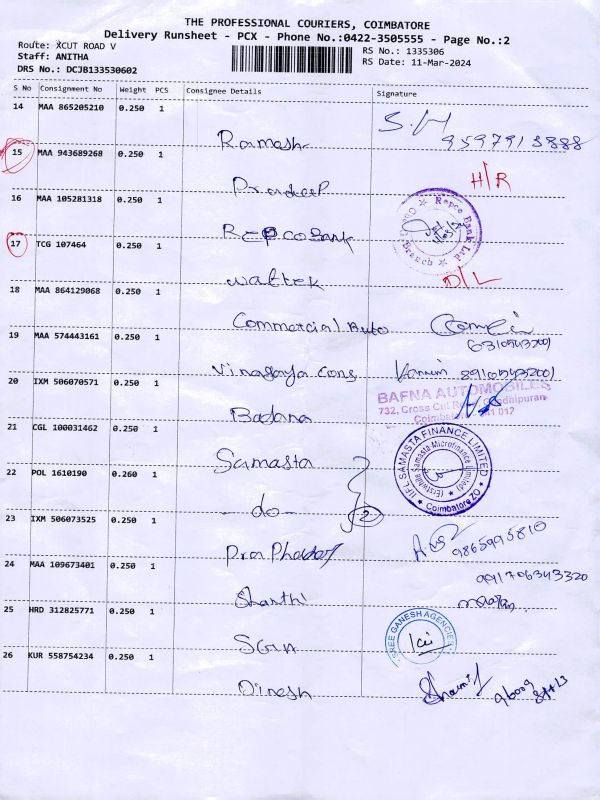 THE PROFESSIONAL COURIERS, COIMBATORE
Delivery Runsheet - PCX - Phone No.:0422-3505555 - Page No.:2
Route: XCUT ROAD V
Staff: ANITHA
DRS No.: DCJB133530602
RS No.: 1335306
RS Date: 11-Mar-2024
S No Consignment No Weight PCS Consignee Details Signature
14 MAA 865205210 0.250 1
Ramesh S.M
9597913888
15 MAA 943689268 0.250 1
Pradeep H/R
16 MAA 105281318 0.250 1
Repco Bank Repco Bank Ltd Branch
17 TCG 107464 0.250 1
Waltek D/L
18 MAA 864129068 0.250 1
Commercial Auto
19 MAA 574443161 0.250 1
Vinayaga Cons
20 IXM 506070571 0.250 1
BAFNA AUTOMOBILES
732, Cross Cut Gandhipuran
Coimbatore
21 CGL 100031462 0.250 1
Samasta IIFL SAMASTA FINANCE LIMITED
(Erstwhile Samasta Microfinance Limited)
Coimbatore ZO
22 POL 1610190 0.260 1
- do - 2
23 IXM 506073525 0.250 1
9865995810
24 MAA 109673401 0.250 1
Shanthi
25 HRD 312825771 0.250 1
SREE GANESH AGENCIES
26 KUR 558754234 0.250 1
Dinesh